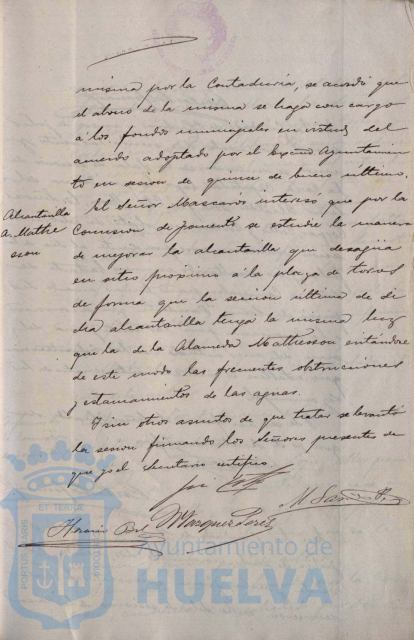 misma por la Contaduría, se acordó que
el abono de la misma se haga con cargo
á los fondos municipales en virtud del
acuerdo adoptado por el Excmo Ayuntamien-
to en sesion de quince de Enero último.
Alcantarilla
A. Mathe
sson
El Señor Mascarós interesó que por la
Comision de fomento se estudie la manera
de mejorar la alcantarilla que desagüa
en sitio próximo á la plaza de toros
de forma que la seccion última de di
cha alcantarilla tenga la misma luz
que la de la Alameda Mathesson evitándose
de este modo las frecuentes obstrucciones
y estancamientos de las aguas.
Y sin otros asuntos de que tratar se levantó
la sesion firmando los Señores presentes de
que yo el Secretario certifico.
Horacio Bel
Marquez
PORTUS MARIS
ET TERRÆ
CUSTODIA
Ayuntamiento de
HUELVA